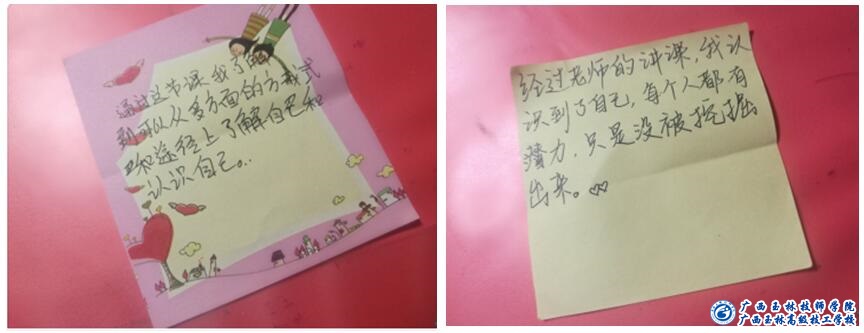 通过这节课,我了解
到可以从多方面的方式
和途径上了解自己和
认识自己。
经过老师的讲课,我认
识到了自己,每个人都有
潜力,只是没被挖掘
出来。
广西玉林技师学院
广西玉林高级技工学校